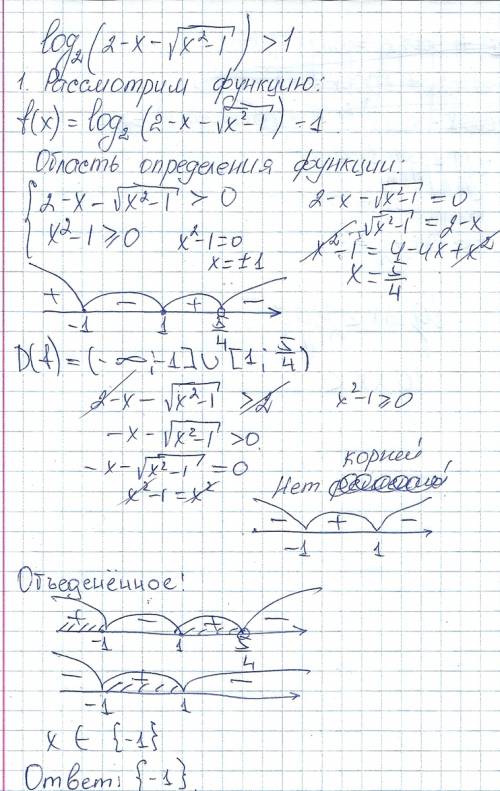 log₂(2-x-√(x²-1)) > 1
1. Рассмотрим функцию:
f(x) = log₂(2-x-√(x²-1)) - 1
Область определения функции:
{ 2-x-√(x²-1) > 0
x²-1 ≥ 0 x²-1=0
x=±1
2-x-√(x²-1) = 0
√(x²-1) = 2-x
x²-1 = 4-4x+x²
x = 5/4
+ - + -
-1 1 5/4
D(f) = (-∞; -1] ∪ [1; 5/4)
2-x-√(x²-1) > 2 x²-1 ≥ 0
-x-√(x²-1) > 0
-x-√(x²-1) = 0
x²-1 = x²
корней
Нет
- + -
-1 1
Объеденённое!
+ - + -
-1 1 5/4
- + -
-1 1
x ∈ {-1}
Ответ: {-1}.